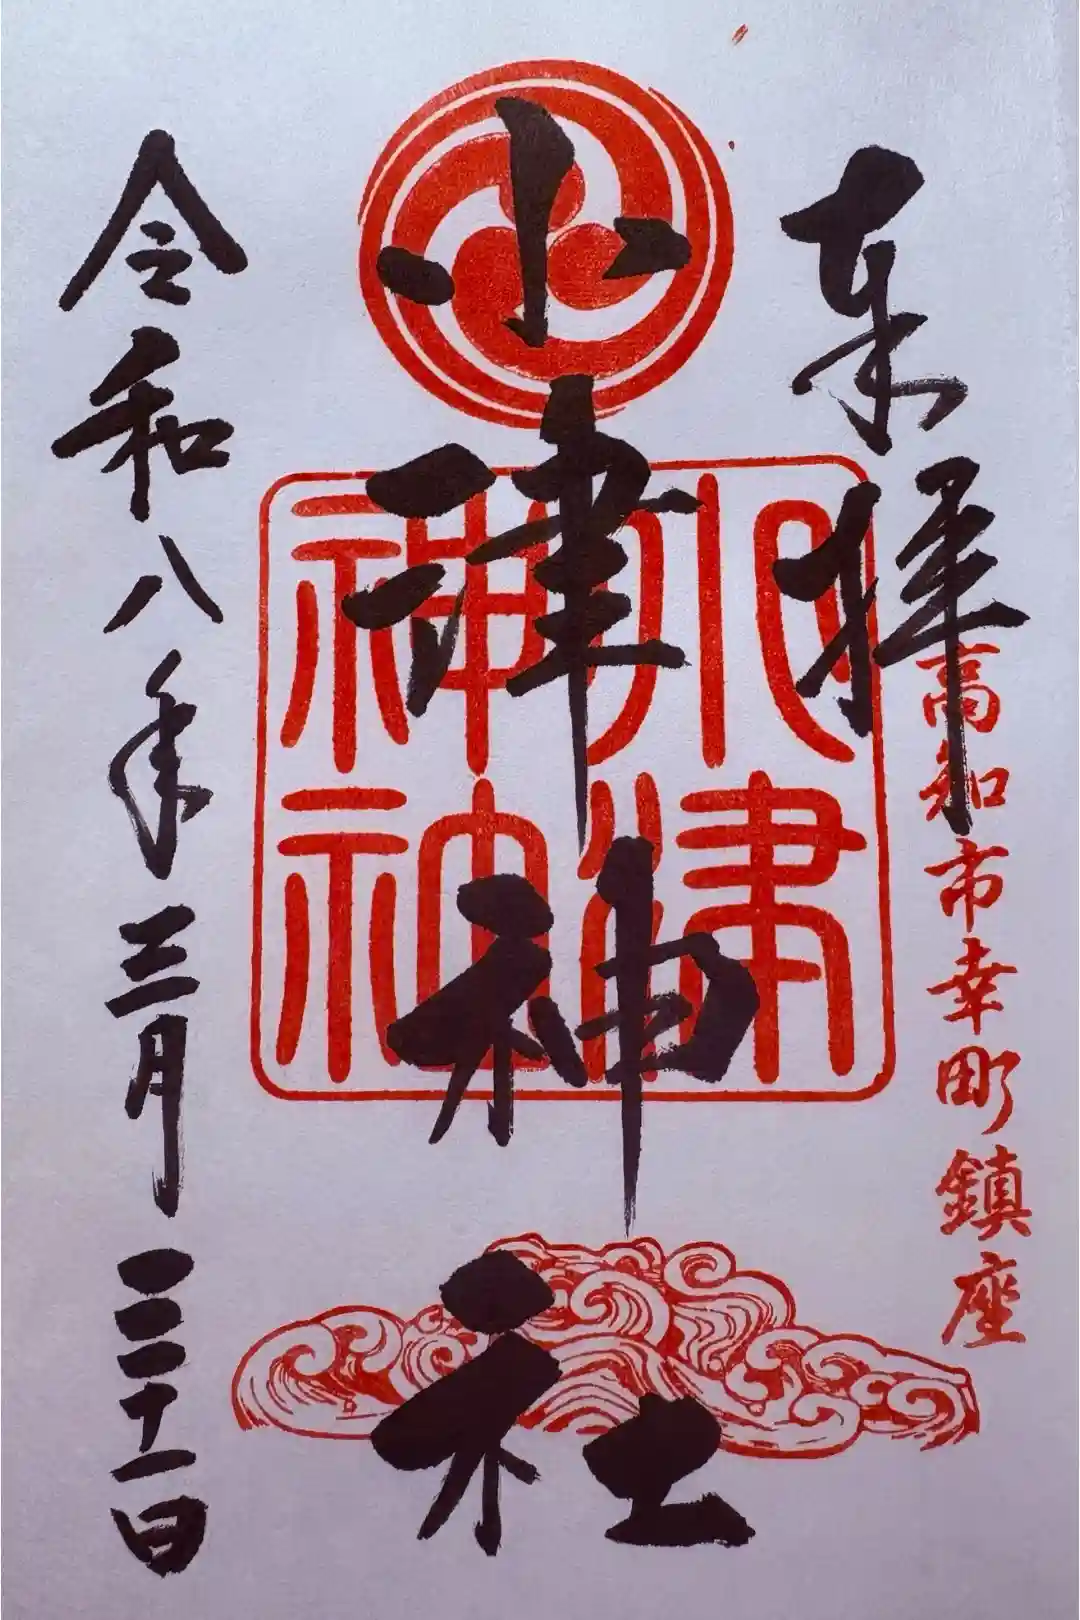 奉拝
高知市幸町鎮座
小津神社
小津神社
令和八年三月三十一日